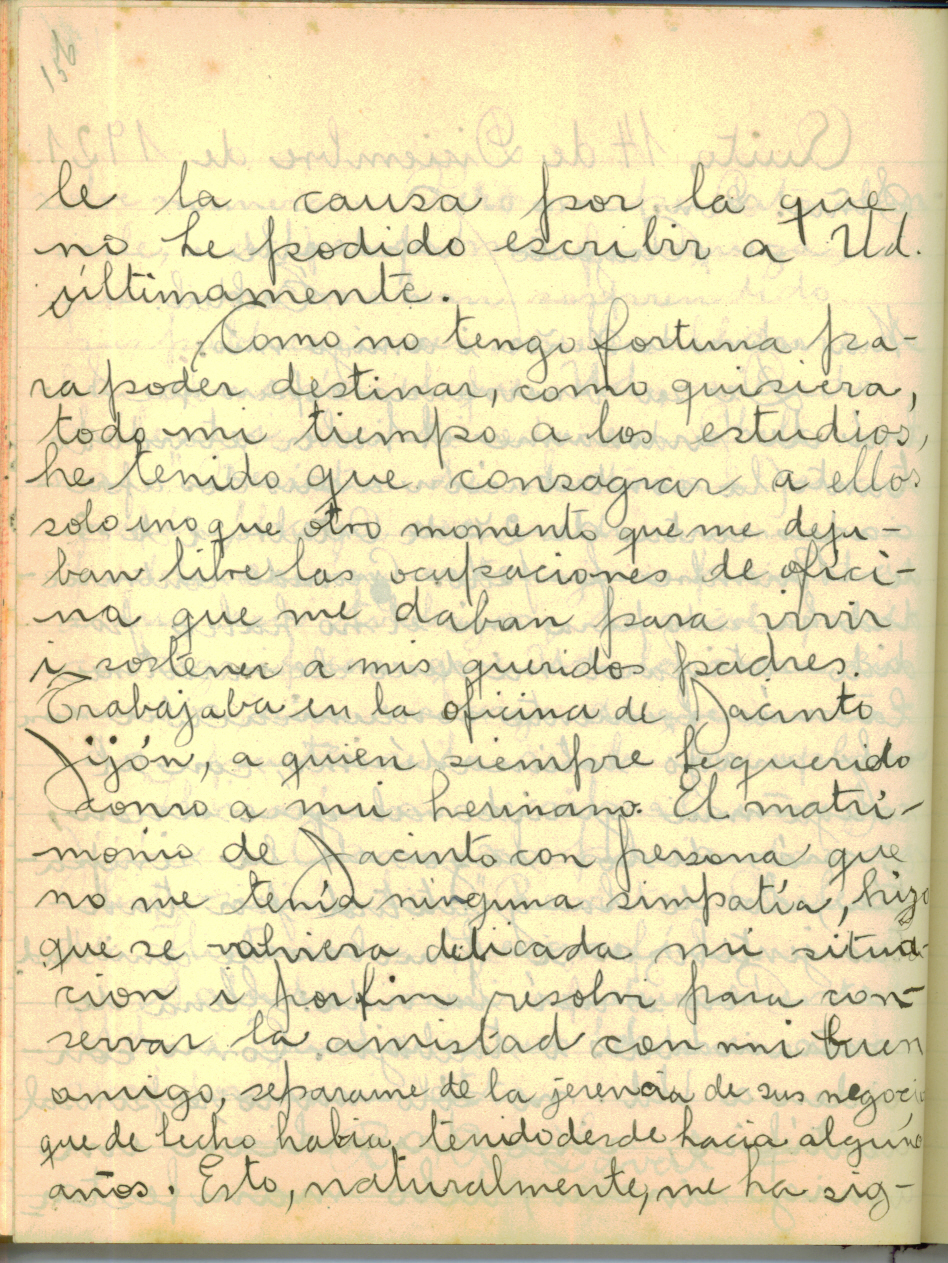 156
le la causa por la que
no he podido escribir a Ud.
últimamente.
Como no tengo fortuna pa-
ra poder destinar, como quisiera,
todo mi tiempo a los estudios,
he tenido que consagrar a ellos
solo uno que otro momento que me deja-
ban libre las ocupaciones de ofici-
na que me daban para vivir
i sostener a mis queridos padres.
Trabajaba en la oficina de Jacinto
Jijón, a quien siempre he querido
como a mi hermano. El matri-
monio de Jacinto con persona que
no me tenía ninguna simpatía, hizo
que se volviera delicada mi situa-
cion i por fin resolví para con-
servar la amistad con mi buen
amigo, separame de la jerencia de sus negocio
que de hecho habia tenido desde hacia alguno
años. Esto, naturalmente, me ha sig-